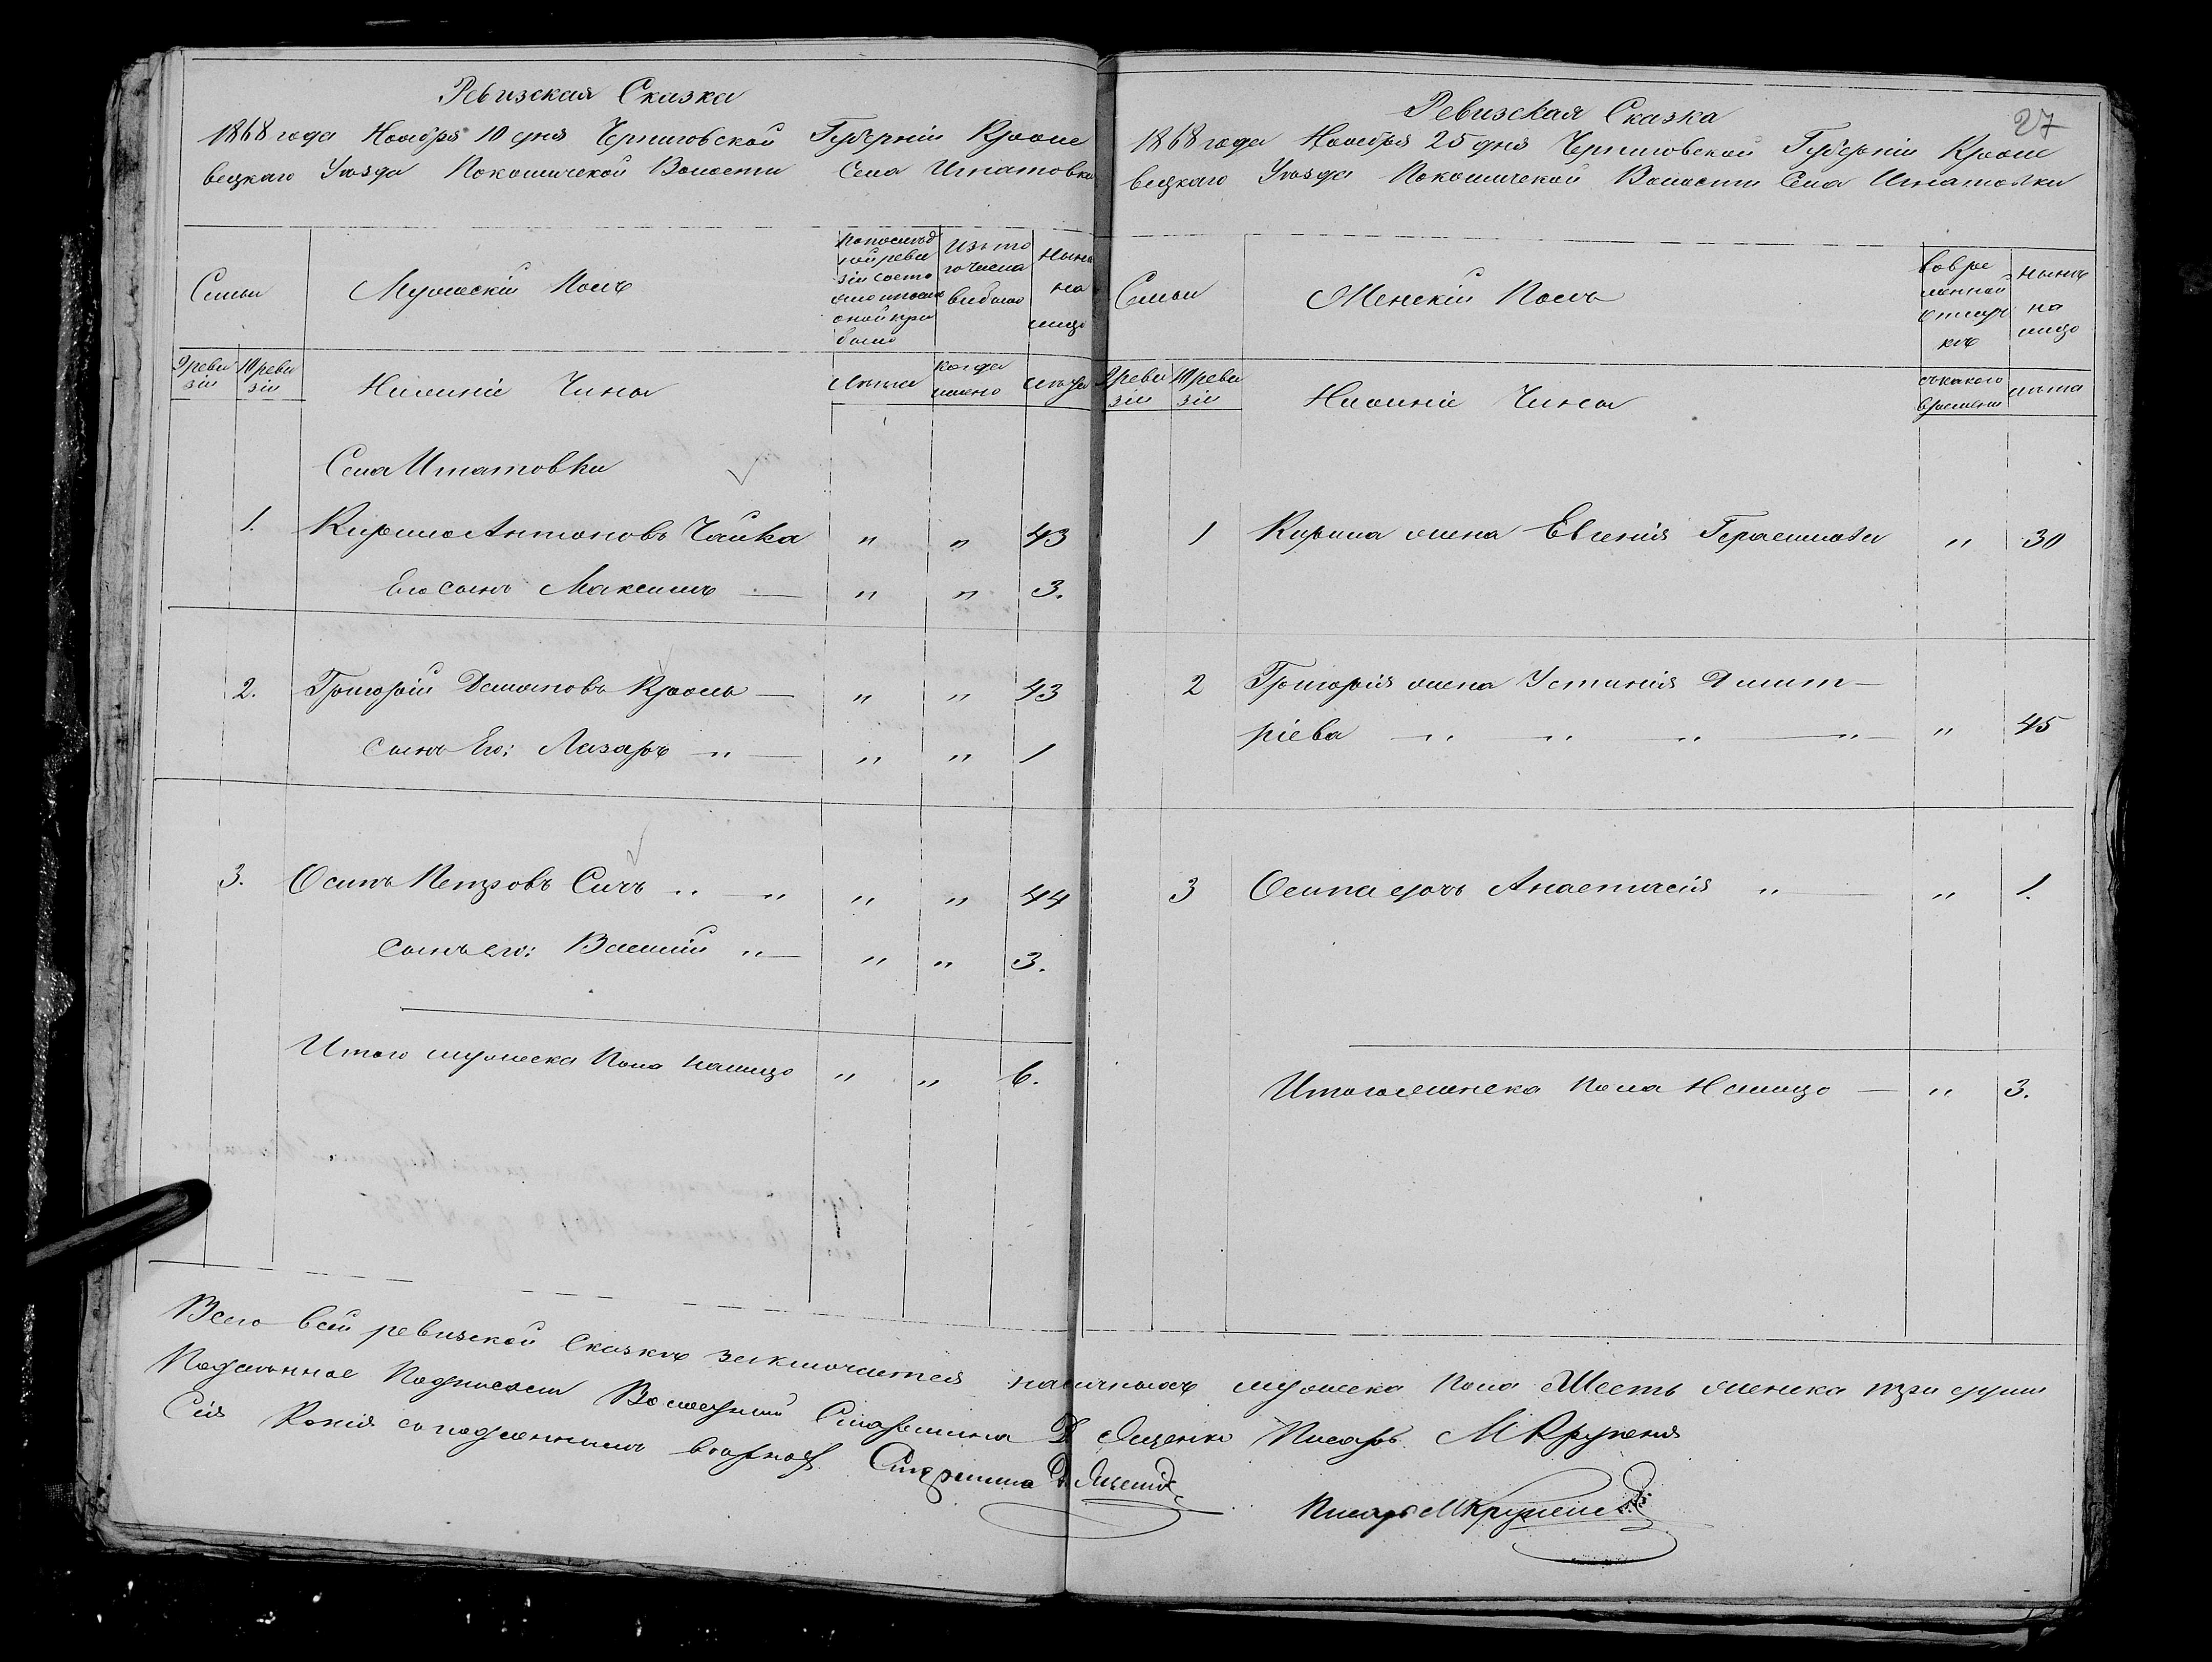 Ревизская Сказка
1868 года Ноября 10 дня Черниговской Губерніи Кроле
вецкаго Уѣзда Покошичской Волости Села Игнатовки
Семьи
Мужескій Полъ
По послѣд
ней реви
зіи состо
яло и послѣ
оной при
было
Изъ то
го числа
выбыло
Нынѣ
на
лицо
9 реви
зіи
10 реви
зіи
Нижніе Чины
лѣта
когда
имено
лѣта
Села Игнатовки
1. Кирило Антоновъ Чайка " " 43
Его сынъ Максимъ — " " 3.
2. Григорій Демяновъ Кроль — " " 43
сынъ Его: Лазарь " — " " 1
3. Осипъ Петровъ Сичъ " — " " " 44
сынъ его: Василій " — " " 3.
Итого мужеска Пола налицо " " 6.
27
Ревизская Сказка
1868 года Ноября 25 дня Черниговской Губерніи Кроле
вецкаго Уѣзда Покошичской Волости Села Игнатовки
Семьи
Женскій Полъ
Во вре
менной
отлуч
кѣ
Нынѣ
на
лицо
9 реви
зіи
10 реви
зіи
Нижніе Чины
съ какого
времени
лѣта
1 Кирила жена Евгенія Герасимова " 30
2 Григорія жена Устинія Дмит—
ріева — " — " — " — " — " 45
3 Осипа дочь Анастасія " — " 1.
Итого женска пола Налицо — " 3.
Всего в сей ревизской Сказкѣ заключается наличныхъ мужеска пола Шесть женска три души
Подлинное Подписали Волостный Старшина Д Ященко Писарь М Крупеня
Сія Копія съ подлиннымъ вѣрна Старшина Д. Ященко
Писарь М Крупеня